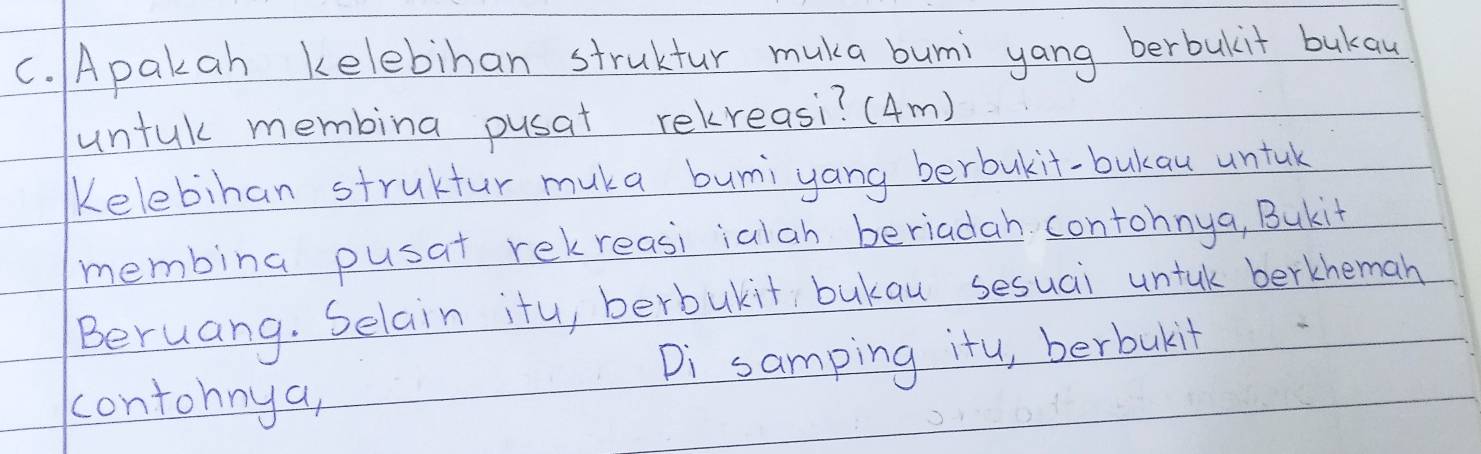 C. Apakah kelebihan struktur muka bumi yang berbukit bukau
untuk membina pusat rekreasi? (4m)
Kelebihan struktur muka bumi yang berbukit-bukau untuk
membina pusat rekreasi ialah beriadah. contohnya, Bukit
Beruang. Selain itu, berbukit bukau sesuai untuk berkhemah
contohnya, Di samping itu, berbukit